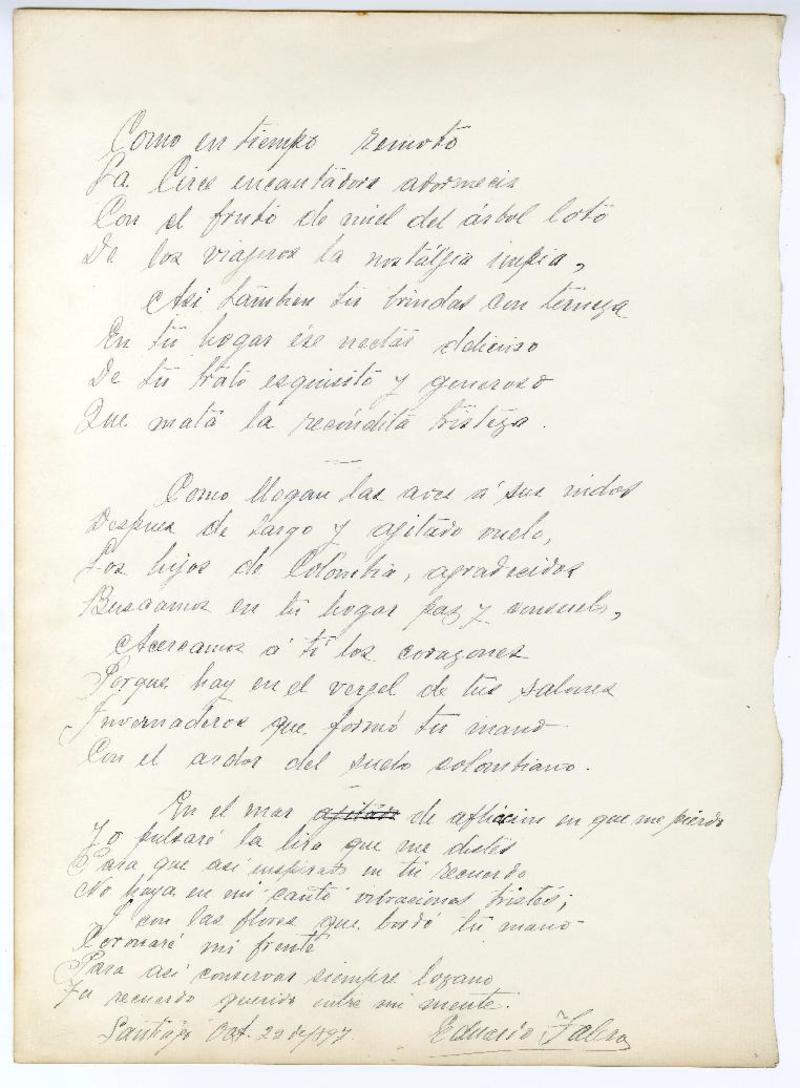 Como en tiempo remoto
La Circe encantadora adormecia
Con el fruto de miel del árbol loto
De los viajeros la nostálgia impia,
Asi tambien tu brindas con terneza
En tu hogar ése nectar delicioso
De tu trato esquisito y generoso
Que mata la recóndita tristeza.
Como llegan las aves á sus nidos
Despues de largo y ajitado vuelo,
Los hijos de Colombia, agradecidos
Buscamos en tu hogar paz y consuelo,
Acercamos á tí los corazones
Porque hay en el verjel de tus salones
Invernaderos que formó tu mano
Con el ardor del suelo colombiano.
En el mar ajitado de afliccion en que me pierdo
Yo pulsaré la lira que me distes
Para que así inspirado en tu recuerdo
No haya en mi canto vibraciones tristes;
I con las flores que bordó tu mano
Coronaré mi frente
Para así conservar siempre lozano
Tu recuerdo querido entre mi mente.
Santiago Oct. 22 de 1897. Eduardo Talero